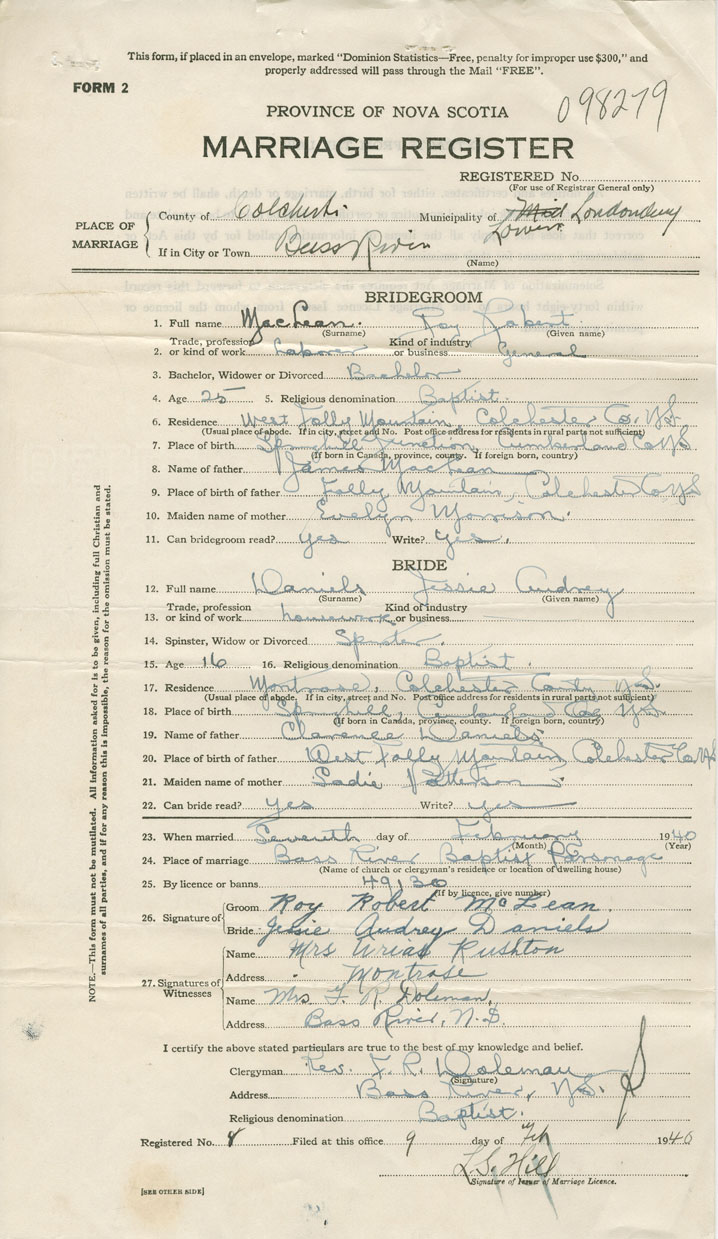 This form, if placed in an envelope, marked "Dominion Statistics—Free, penalty for improper use $300," and
properly addressed will pass through the Mail "FREE".
FORM 2
098279
PROVINCE OF NOVA SCOTIA
MARRIAGE REGISTER
REGISTERED No.
(For use of Registrar General only)
PLACE OF MARRIAGE
County of Colchester Municipality of Londonderry
Lower
If in City or Town Bass River
(Name)
BRIDEGROOM
1. Full name MacLean. Roy Robert.
(Surname) (Given name)
2. Trade, profession or kind of work Laborer Kind of industry or business General
3. Bachelor, Widower or Divorced Bachelor
4. Age 25 5. Religious denomination Baptist.
6. Residence West Folly Mountain, Colchester Co. N.S.
(Usual place of abode. If in city, street and No. Post office address for residents in rural parts not sufficient)
7. Place of birth Springhill Junction, Cumberland Co N.S.
(If born in Canada, province, county. If foreign born, country)
8. Name of father James MacLean
9. Place of birth of father Folly Mountain, Colchester Co N.S
10. Maiden name of mother Evelyn Morrison.
11. Can bridegroom read? yes Write? yes.
BRIDE
12. Full name Daniels Jessie Audrey
(Surname) (Given name)
13. Trade, profession or kind of work housework Kind of industry or business
14. Spinster, Widow or Divorced Spinster.
15. Age 16 16. Religious denomination Baptist.
17. Residence Montrose, Colchester County N.S.
(Usual place of abode. If in city, street and No. Post office address for residents in rural parts not sufficient)
18. Place of birth Springhill, Cumberland Co., N.S.
(If born in Canada, province, county. If foreign born, country)
19. Name of father Clarence Daniels
20. Place of birth of father West Folly Mountain Colchester Co N.S
21. Maiden name of mother Sadie Patterson.
22. Can bride read? yes Write? yes
23. When married Seventh day of February 1940
(Month) (Year)
24. Place of marriage Bass River Baptist Parsonage
(Name of church or clergyman's residence or location of dwelling house)
25. By licence or banns 49130
(If by licence, give number)
26. Signature of
Groom Roy Robert McLean.
Bride Jessie Audrey Daniels
27. Signatures of Witnesses
Name Mrs Urias Rushton
Address Montrose
Name Mrs. F. R. Doleman,
Address Bass River, N.S.
I certify the above stated particulars are true to the best of my knowledge and belief.
Clergyman Rev. F. R. Doleman
(Signature)
Address Bass River, N.S.
Religious denomination Baptist.
Registered No. 8 Filed at this office 9 day of Feb 1940
L.S. Hill
Signature of Issuer of Marriage Licence.
[SEE OTHER SIDE]
NOTE.—This form must not be mutilated. All Information asked for is to be given, including full Christian and
surnames of all parties, and if for any reason this is impossible, the reason for the omission must be stated.